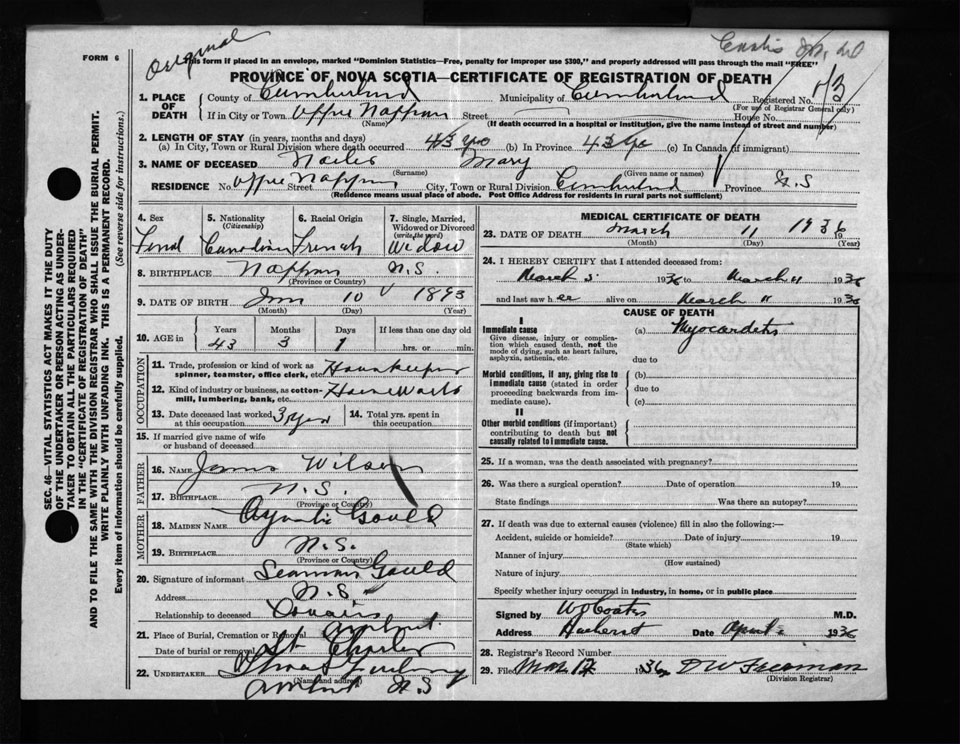 Original
FORM 6
This form if placed in an envelope, marked "Dominion Statistics—Free, penalty for improper use $300," and properly addressed will pass through the mail "FREE"
PROVINCE OF NOVA SCOTIA—CERTIFICATE OF REGISTRATION OF DEATH
1. PLACE OF DEATH
County of Cumberland Municipality of Cumberland Registered No. 13
(For use of Registrar General only)
If in City or Town Upper Nappan Street House No.
(Name) (If death occurred in a hospital or institution, give the name instead of street and number)
2. LENGTH OF STAY (in years, months and days)
(a) In City, Town or Rural Division where death occurred 43 yrs (b) In Province 43 yrs (c) In Canada (if immigrant)
3. NAME OF DECEASED Mary
(Surname) (Given name or names)
RESIDENCE No. Upper Street Nappan City, Town or Rural Division Cumberland Province N.S
(Residence means usual place of abode. Post Office Address for residents in rural parts not sufficient)
4. Sex 5. Nationality (Citizenship) 6. Racial Origin 7. Single, Married, Widowed or Divorced (write the word)
Canadian French Widow
8. BIRTHPLACE Nappan N.S.
(Province or Country)
9. DATE OF BIRTH 10 1893
(Month) (Day) (Year)
10. AGE in Years Months Days If less than one day old
43 3 1 hrs. or min.
OCCUPATION
11. Trade, profession or kind of work as spinner, teamster, office clerk, etc. Housekeeper
12. Kind of industry or business, as cotton-mill, lumbering, bank, etc. House Work
13. Date deceased last worked at this occupation 3 14. Total yrs. spent in this occupation
15. If married give name of wife or husband of deceased
FATHER
16. NAME James Wilson
17. Birthplace N.S.
(Province or Country)
MOTHER
18. MAIDEN NAME Gould
19. BIRTHPLACE N.S.
(Province or Country)
20. Signature of informant Seaman Gould
Address N.S.
Relationship to deceased Cousin
21. Place of Burial, Cremation or Removal Amherst
Date of burial or removal St Charles
22. UNDERTAKER
(Name and address)
Amherst N.S
MEDICAL CERTIFICATE OF DEATH
23. DATE OF DEATH March 11 1936
(Month) (Day) (Year)
24. I HEREBY CERTIFY that I attended deceased from:
March 5 1936 to March 11 1936
and last saw her alive on March 11 1936
CAUSE OF DEATH
I
Immediate cause (a) Myocarditis
Give disease, injury or complication which caused death, not the mode of dying, such as heart failure, asphyxia, asthenia, etc.
due to
Morbid conditions, if any, giving rise to immediate cause (stated in order proceeding backwards from immediate cause).
(b)
due to
(c)
II
Other morbid conditions (if important) contributing to death but not causally related to immediate cause.
25. If a woman, was the death associated with pregnancy?
26. Was there a surgical operation? Date of operation 19
State findings Was there an autopsy?
27. If death was due to external causes (violence) fill in also the following:—
Accident, suicide or homicide? Date of injury 19
(State which)
Manner of injury
(How sustained)
Nature of injury
Specify whether injury occurred in industry, in home, or in public place
Signed by W Coates M.D.
Address Amherst Date April 1936
28. Registrar's Record Number
29. Filed Mar 12 1936
(Division Registrar)
SEC. 46—VITAL STATISTICS ACT MAKES IT THE DUTY
OF THE UNDERTAKER OR PERSON ACTING AS UNDERTAKER TO OBTAIN ALL THE PARTICULARS REQUIRED
IN THE "CERTIFICATE OF REGISTRATION OF DEATH"
AND TO FILE THE SAME WITH THE DIVISION REGISTRAR WHO SHALL ISSUE THE BURIAL PERMIT.
WRITE PLAINLY WITH UNFADING INK. THIS IS A PERMANENT RECORD.
Every item of information should be carefully supplied. (See reverse side for instructions.)